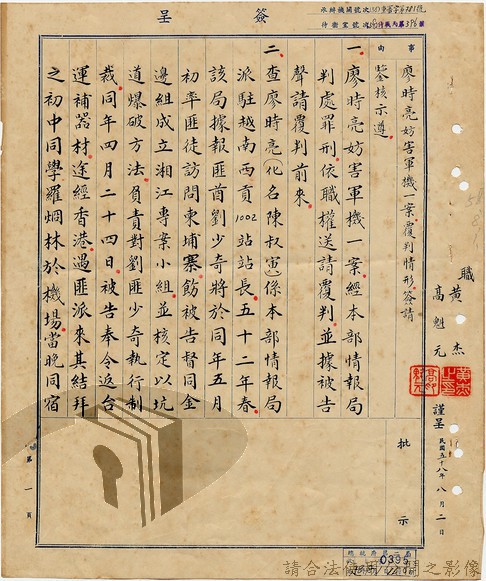 簽呈
承辦機關號次
侍衛室號次
事由
廖時亮妨害軍機一案覆判情形,簽請
鑒核示遵。
一、廖時亮妨害軍機一案經本部情報局
判處罪刑,依職權送請覆判,並據被告
聲請覆判前來。
二、查廖時亮(化名陳叔寅)係本部情報局
派駐越南西貢1002站站長,五十二年春
該局據報匪酋劉少奇將於同年五月
初率匪徒訪問柬埔寨,飭被告督同金
邊組成立湘江專案小組,並核定以坑
道爆破方法,負責對劉匪少奇執行制
裁。同年四月二十四日,被告奉令返台
運補器材,途經香港,遇匪派來其結拜
之初中同學羅烱林於機場,當晚同宿
職
黃杰
高魁元
謹呈
民國五十八年八月二日
批示
第一頁
0395
請合法使用檔案之影像